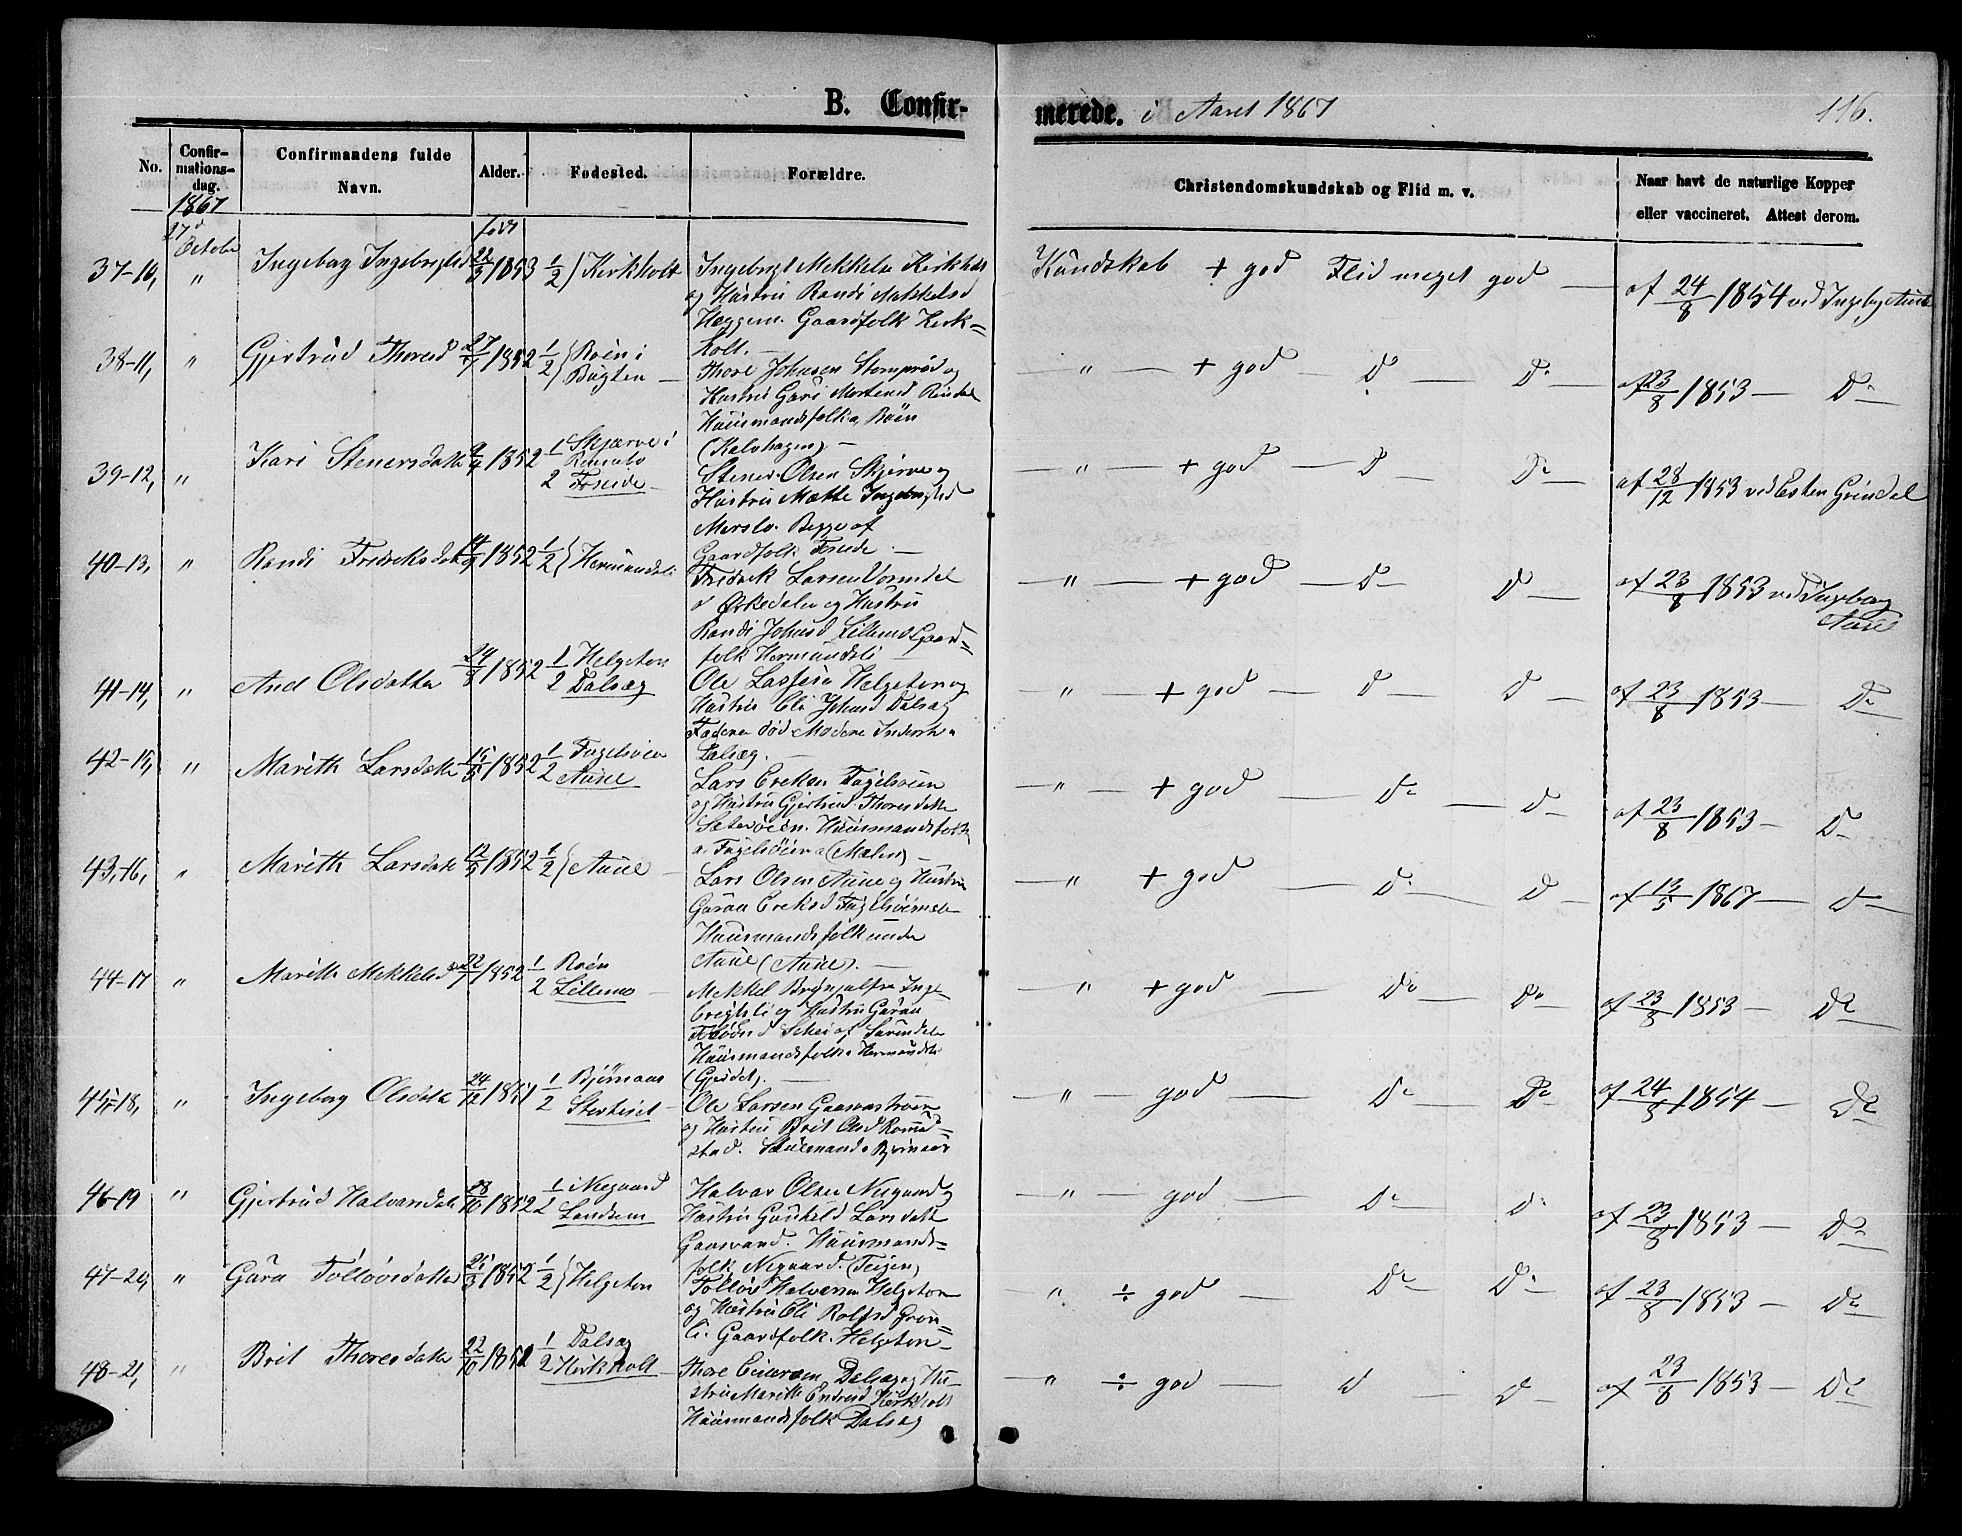 B. Confir-
merede. i Aaret 1867
116.
No.
Confir-
mations-
dag.
Confirmandens fulde
Navn.
Alder.
Fødested.
Forældre.
Christendomskundskab og Flid m. v.
Naar havt de naturlige Kopper
eller vaccineret. Attest derom.
1867
27d October
født
37-10, " Ingeborg Ingebrigtsd 1853 1/2 Kirkholt
Ingebrigt Mekkelsen Kirkholt
og Hustru Randi Mekkelsd
Heggem. Gaardfolk Kirk=
holt. —
Kundskab + god Flid meget god — af 24/8 1854 ved Ingebg Aune
38-11, " Gjertrud Thoresd 27/7 1852 1/2 Roën i
Bugten —
Thore Johnsen Stomprød og
Hustru Guri Mortensd Rindal
Huusmandsfolk Roën
(Kalvhagen) —
— " — + god — D — D — af 23/8 1853 — D —
39-12, " Kari Stenersdatter 1852 1/2 Skjærve i
Foseide —
Stener Olsen Skjerve og
Hustru Mætte Ingebrigtsd
Merslo. Begge af
Gaardfolk Foseide —
— " — + god — D — D — af 28/12 1853 ved Esten Grindal
40-13, " Randi Fredriksdat 1852 1/2 Hermandsli
Fredrik Larsen Vormdal
Orkedalen og Hustru
Randi Johnsd Lillemo Gaard=
folk Hermandsli —
— " — + god — D — D — af 23/8 1853 ved Ingeborg
Aune
41-14, " Ane Olsdatter 24/8 1852 1/2 Helgeton
Dalsæg
Ole Larsen Helgeton og
Hustru Eli Johnsd Dalsæg
Faderen død Modern
Dalsæg —
" — + god — D — D — af 23/8 1853 — D —
42-15, " Marith Larsdatter 1852 1/2 Fuglsøien
Aune
Lars Ereksen Fuglsøien
og Hustru Gjertrud Thoresdatter
Sæterøien. Huusmandsfolk
Fuglsøien (Mælen) —
— " — + god — D — D — af 23/8 1853 — D —
43-16, " Marith Larsdatter 1852 1/2 Aune —
Lars Olsen Aune og Hustru
Guraa Ereksd Fuglsøien
Huusmandsfolk under
Aune (Aune). —
— " + god — D — D — af 13/5 1867 — D —
44-17 " Marith Mekkelsd 22/7 1852 1/2 Roën
Lillemo —
Mekkel Brynjulfsen Inge-
brigtsli og Hustru Guraa
Schei af Surendalen
Huusmandsfolk Hermandsli
(Gjerdet). —
" — + god — D — D — af 23/8 1853 — D —
45-18, " Ingeborg Olsdatter 24/12 1851 1/2 Bjørnaas
Storliset —
Ole Larsen Gaasvastroen
og Hustru Brit Olsd Romund=
stad. Bjørnaas
" — god — D — D — af 24/8 1854 — D —
46-19 " Gjertrud Halvarsdatter 28/10 1852 1/2 Negaard
Landsem
Halvar Olsen Negaard og
Hustru Gunhild Larsdatter
Gaasvand. Huusmands=
folk Negaard. (Teigen)
— " — god — D — D — af 23/8 1853 — D —
47-20, " Gura Tolløvsdatter 1852 1/2 Helgeton
Tolløv Halvarsen Helgeton
og Hustru Eli Rolfsd Grøn=
li. Gaardfolk. Helgeton —
" ÷ god — D — D — af 23/8 1853 — D —
48-21, " Brit Thoresdatter 22/10 1852 1/2 Dalsæg
Kirkholt —
Thore Einersen Dalsæg og Hu-
stru Marith Kirkholt
Huusmandsfolk Dalsæg
— " ÷ god — D — D — af 23/8 1853 — D —